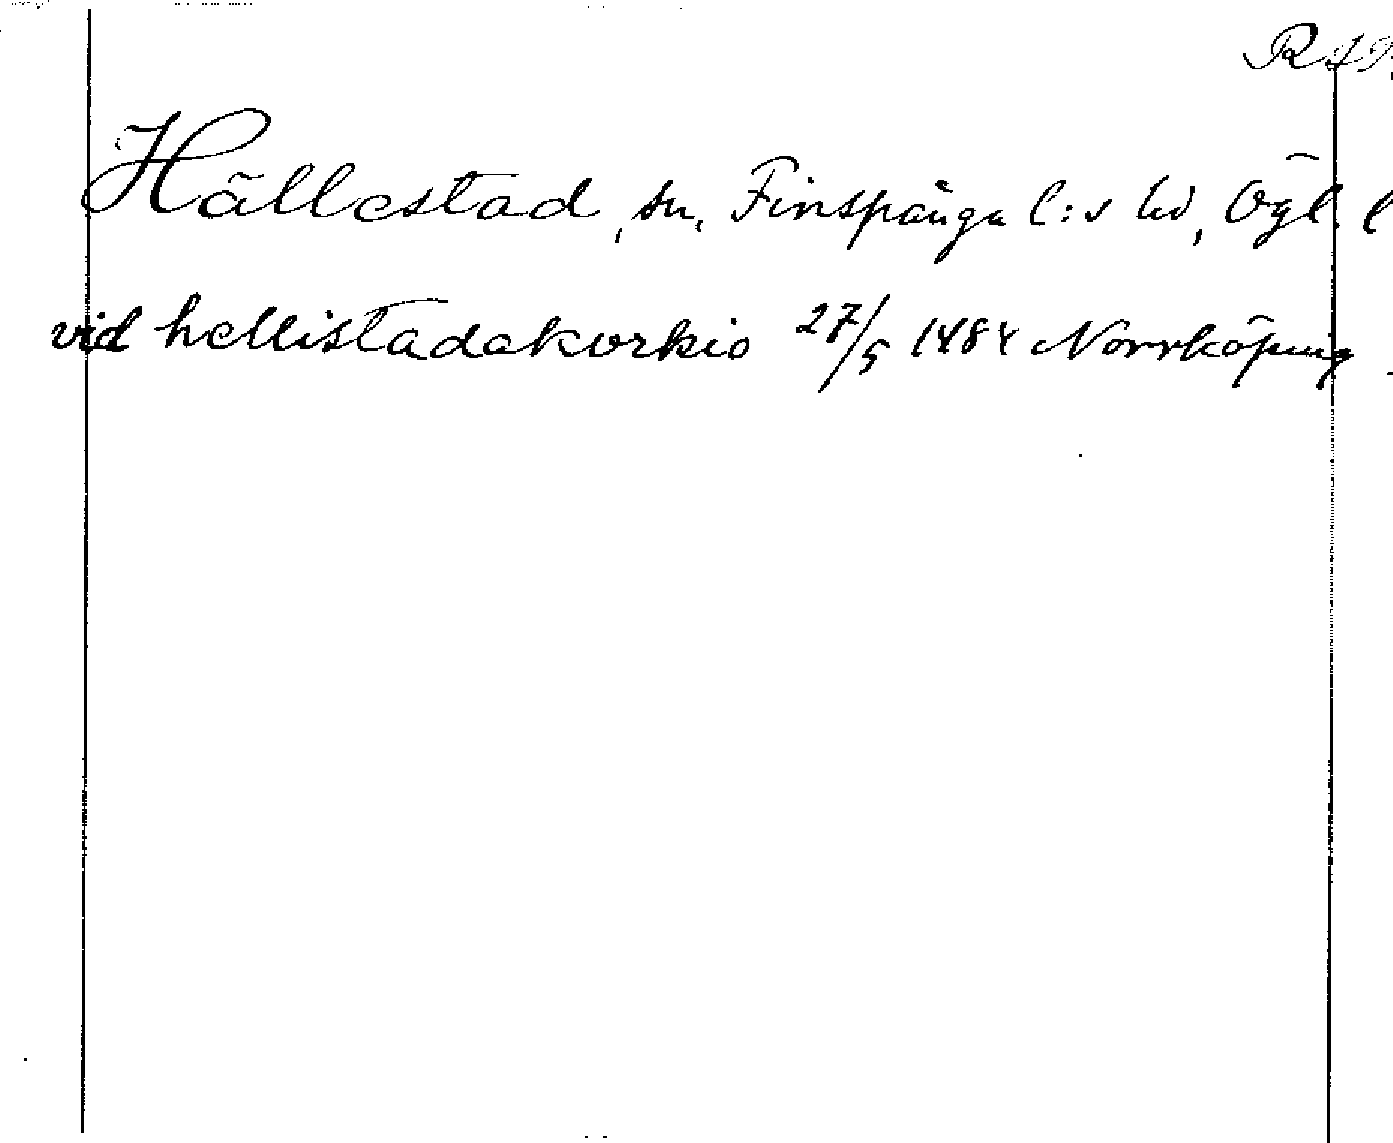 RAP
Hällestad, sn, Finspånga l:s hd, Ögl. l
vid hellistadakorkio 27/5 1484 Norrköping